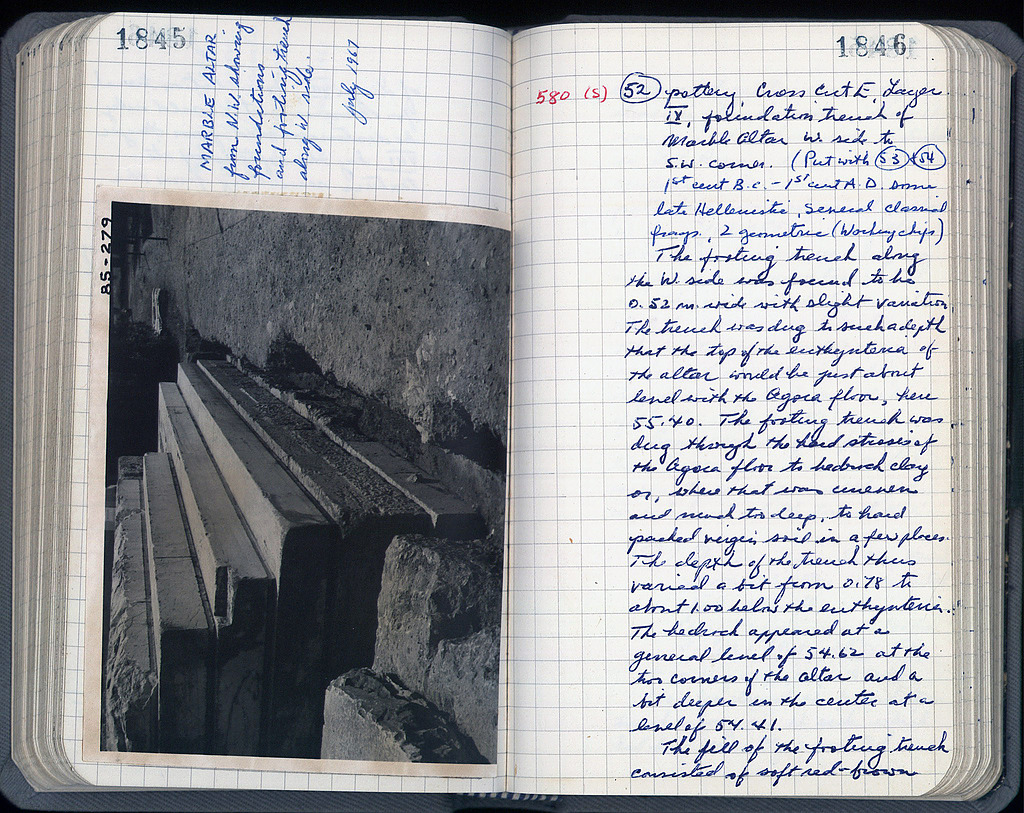 1845
MARBLE ALTAR
from N.W. showing
foundations
and footing trench
along W. side.
July 1967
85-279
1846
580 (S) 52 pottery, Cross Cut E, Layer
IX, foundation trench of
Marble Altar W. side to
S.W. corner. (Put with 53 + 54)
1st cent B.C. - 1st cent A.D. some
late Hellenistic, Several classical
frags, 2 geometric (Working chips)
The footing trench along
the W. side was found to be
0.52 m. wide with slight variation.
The trench was dug to such a depth
that the top of the euthynteria of
the altar would be just about
level with the Agora floor, here
55.40. The footing trench was
dug through the hard strosis of
the Agora floor to bedrock clay
or, where that was uneven
and much too deep, to hard
packed virgin soil in a few places.
The depth of the trench thus
varied a bit from 0.78 to
about 1.00 below the euthynteria.
The bedrock appeared at a
general level of 54.62 at the
two corners of the altar and a
bit deeper in the center at a
level of 54.41.
The fill of the footing trench
consisted of soft red-brown